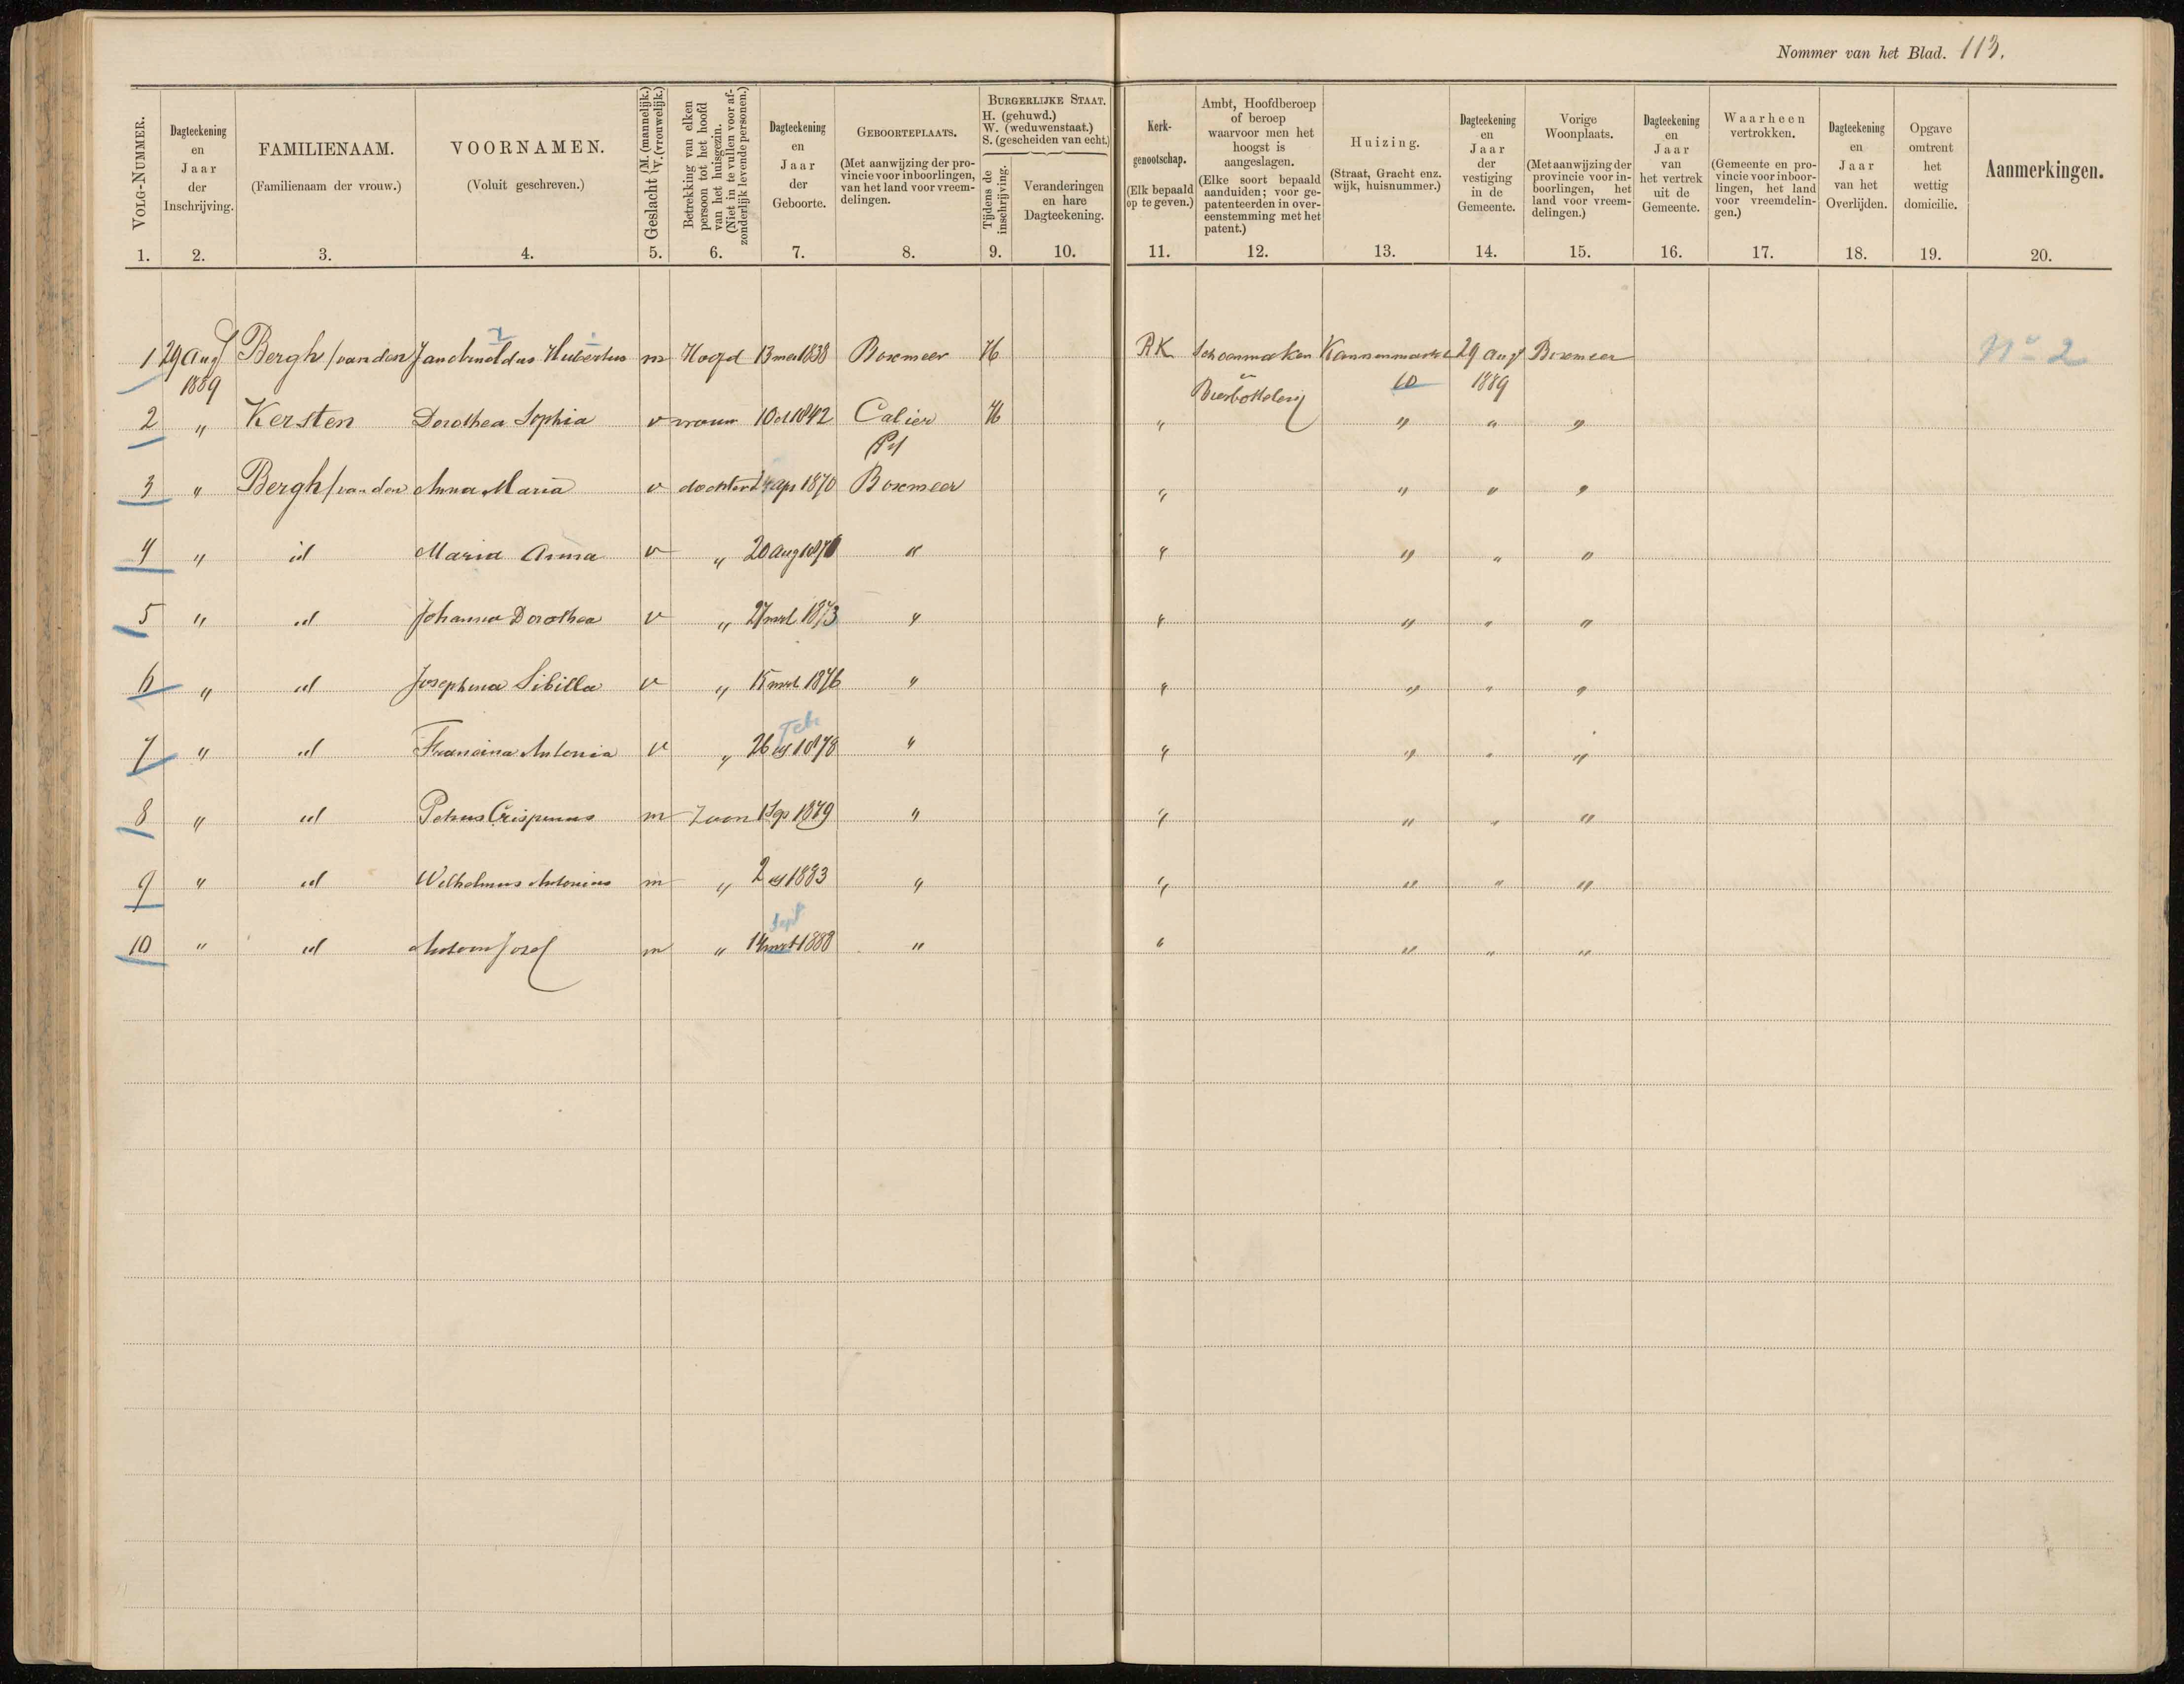 Nommer van het Blad. 113.
VOLG-NUMMER.
Dagteekening en Jaar der Inschrijving.
FAMILIENAAM.
(Familienaam der vrouw.)
VOORNAMEN.
(Voluit geschreven.)
Geslacht {M. (mannelijk.) V. (vrouwelijk.)
Betrekking van elken persoon tot het hoofd van het huisgezin. (Niet in te vullen voor afzonderlijk levende personen.)
Dagteekening en Jaar der Geboorte.
GEBOORTEPLAATS.
(Met aanwijzing der provincie voor inboorlingen, van het land voor vreemdelingen.
BURGERLIJKE STAAT.
H. (gehuwd.)
W. (weduwenstaat.)
S. (gescheiden van echt.)
Tijdens de inschrijving.
Veranderingen en hare Dagteekening.
Kerkgenootschap.
(Elk bepaald op te geven.)
Ambt, Hoofdberoep of beroep waarvoor men het hoogst is aangeslagen.
(Elke soort bepaald aanduiden; voor gepatenteerden in overeenstemming met het patent.)
Huizing.
(Straat, Gracht enz. wijk, huisnummer.)
Dagteekening en Jaar der vestiging in de Gemeente.
Vorige Woonplaats.
(Met aanwijzing der provincie voor inboorlingen, het land voor vreemdelingen.)
Dagteekening en Jaar van het vertrek uit de Gemeente.
Waarheen vertrokken.
(Gemeente en provincie voor inboorlingen, het land voor vreemdelingen.)
Dagteekening en Jaar van het Overlijden.
Opgave omtrent het wettig domicilie.
Aanmerkingen.
1. 2. 3. 4. 5. 6. 7. 8. 9. 10. 11. 12. 13. 14. 15. 16. 17. 18. 19. 20.
1 29 Aug Bergh /van den Jan Arnoldus Hubertus m Hoofd 13 mei 1838 Boxmeer H RK Schoenmaker Kannenmarkt 29 Aug Boxmeer No 2
1889 en Bierbottelerij 10 1889
2 " Kersten Dorothea Sophia v vrouw 10 oct 1842 Calier H " " " "
3 " Bergh /van den Anna Maria v dochter apr 1870 Boxmeer " " " "
4 " id Maria Anna v " 20 Aug 187 " " " " "
5 " id Johanna Dorothea v " 27 mrt 1873 " " " " "
6 " id Josephina Sibilla v " 15 mrt 1876 " " " " "
Feb
7 " id Francina Antonia v " 26 1878 " " " " "
8 " id Petrus Crispinus m Zoon 1 Sep 1879 " " " " "
9 " id Wilhelmus Antonius m " 2 1883 " " " " "
Sept
10 " id Antoon Josef m " 14 mrt 1888 " " " " "